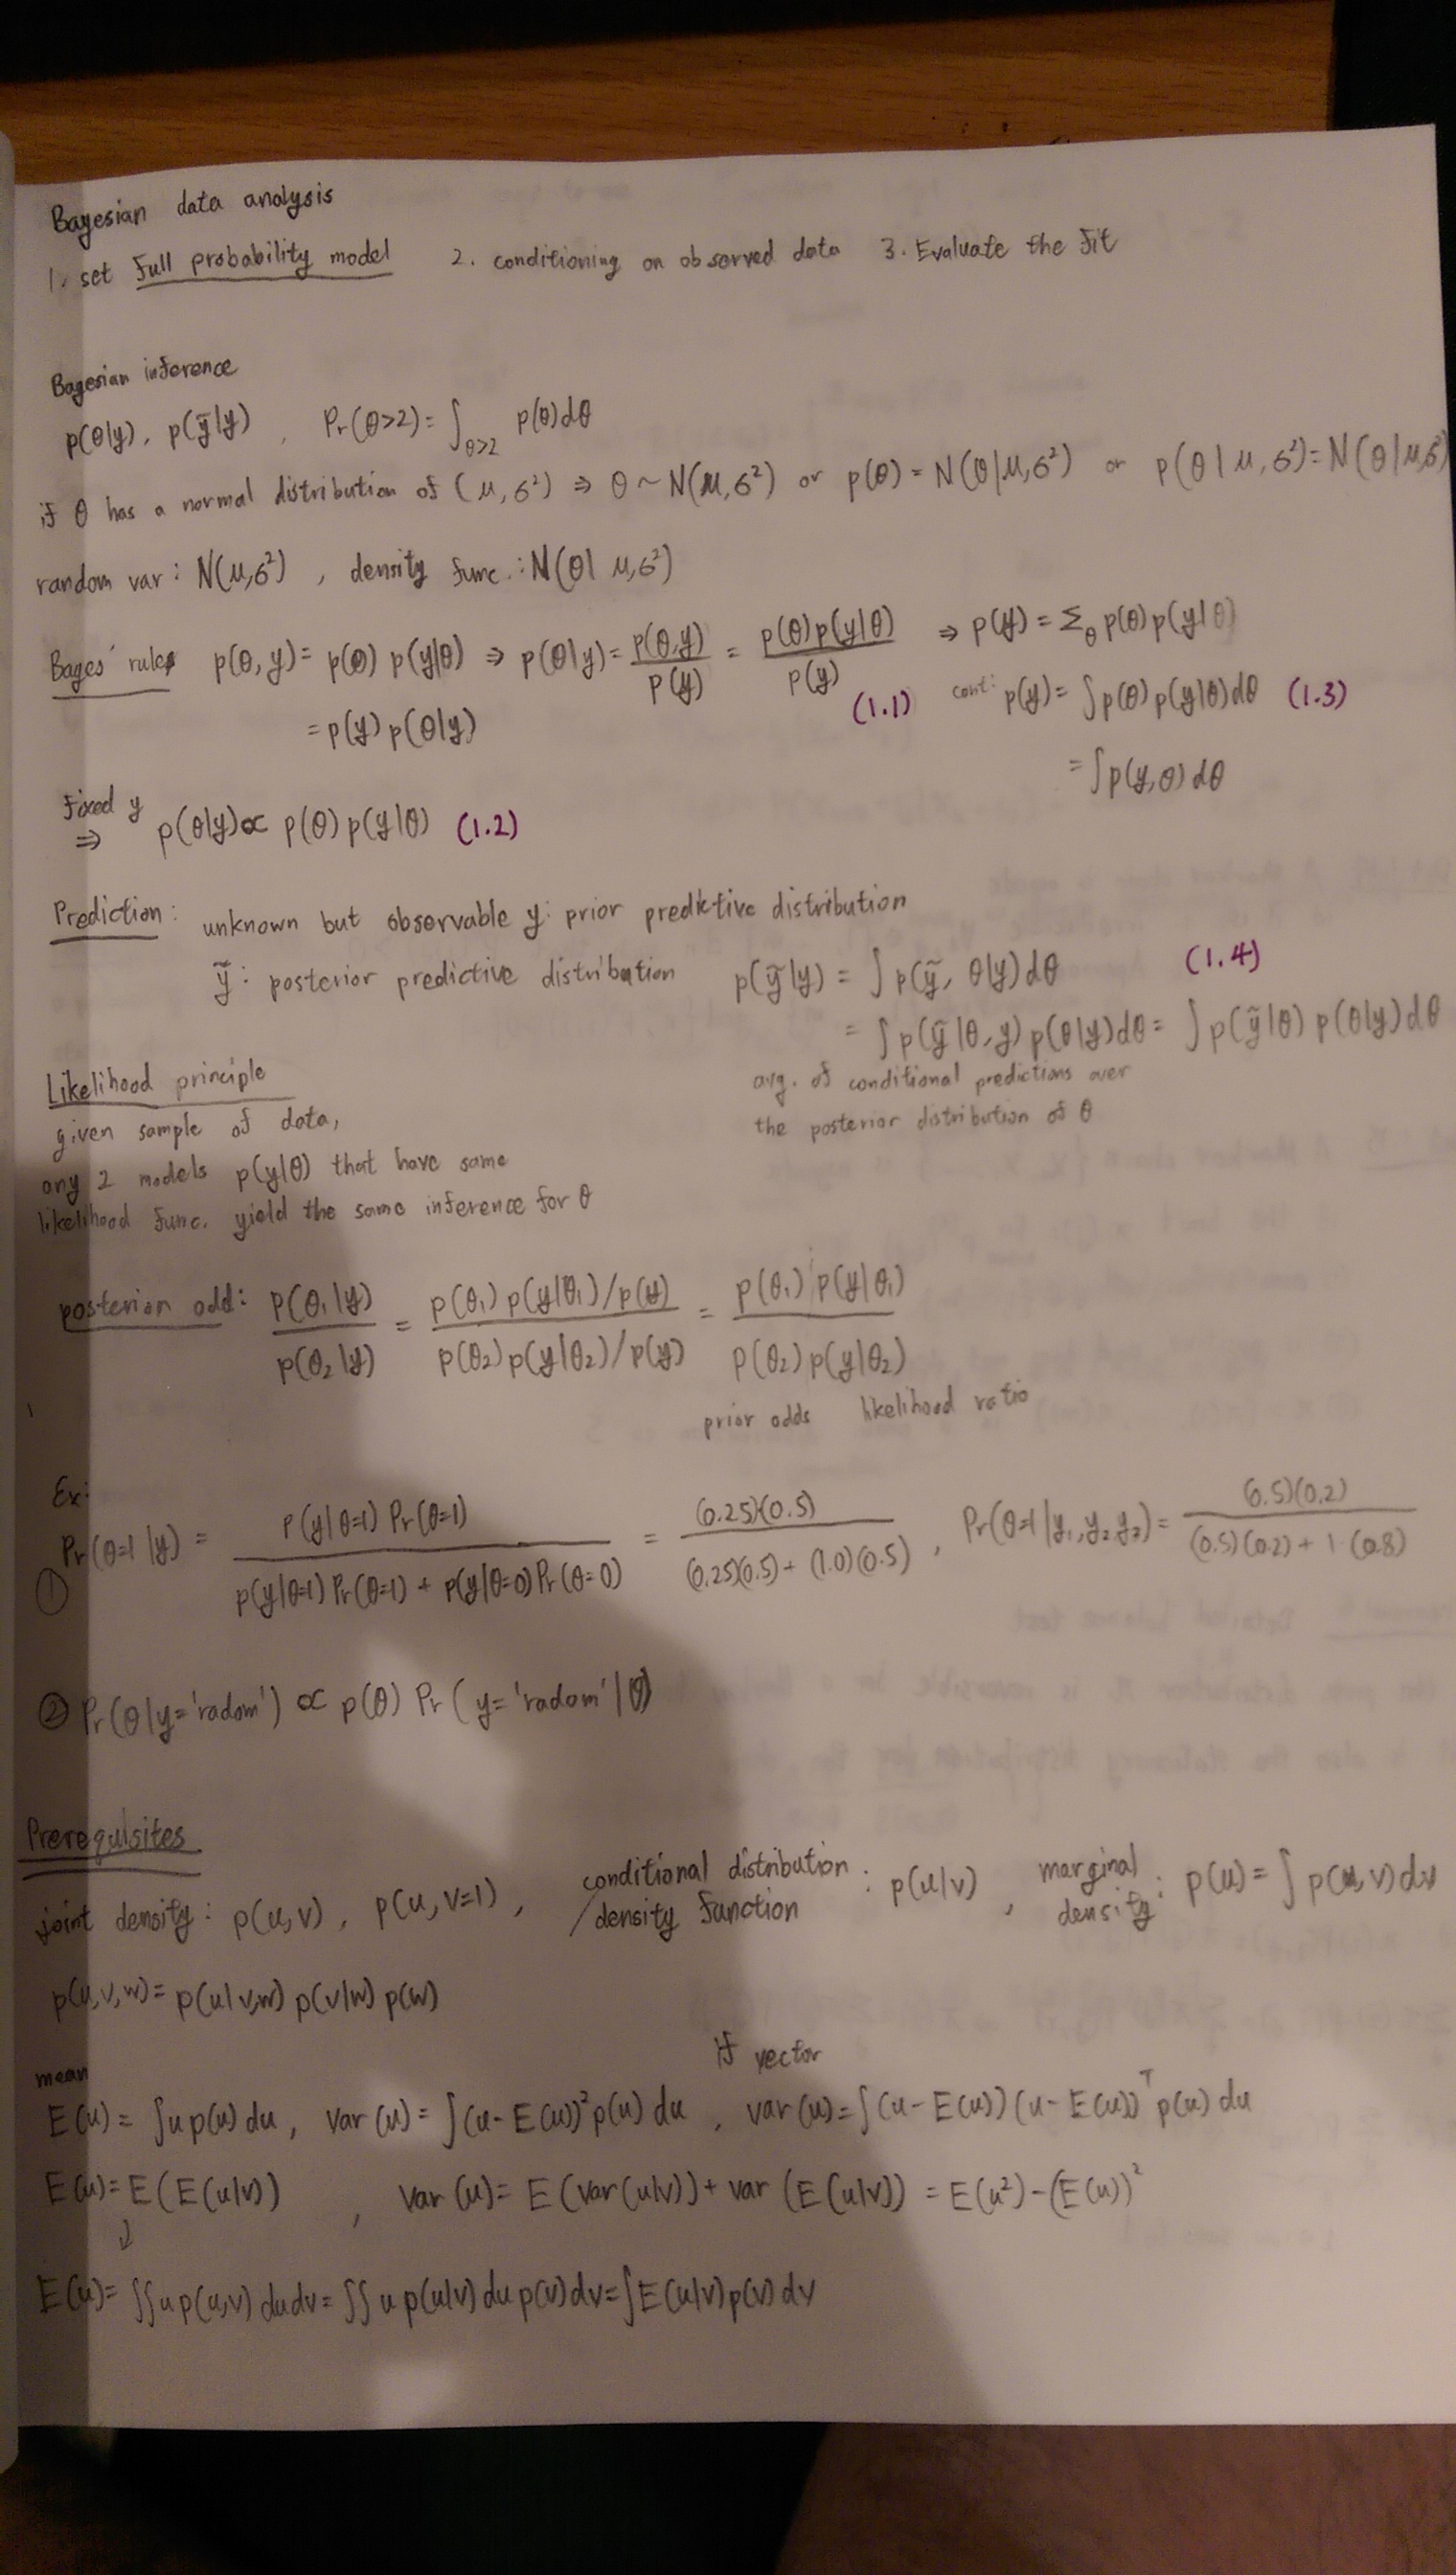 Bayesian data analysis
1. set full probability model 2. conditioning on observed data 3. Evaluate the fit
Bayesian inference
p(θ|y), p(ỹ|y), Pr(θ>2) = ∫θ>2 p(θ)dθ
if θ has a normal distribution of (μ,σ²) ⇒ θ ~ N(μ,σ²) or p(θ) = N(θ|μ,σ²) or p(θ|μ,σ²) = N(θ|μ,σ²)
random var: N(μ,σ²), density func.: N(θ| μ,σ²)
Bayes' rules p(θ,y) = p(θ) p(y|θ) ⇒ p(θ|y) = p(θ,y)/p(y) = p(θ)p(y|θ)/p(y) (1.1) ⇒ p(y) = Σθ p(θ)p(y|θ)
= p(y) p(θ|y) cont: p(y) = ∫p(θ)p(y|θ)dθ (1.3)
= ∫p(y,θ)dθ
Fixed y
⇒ p(θ|y) ∝ p(θ)p(y|θ) (1.2)
Prediction: unknown but observable y: prior predictive distribution
ỹ: posterior predictive distribution p(ỹ|y) = ∫p(ỹ, θ|y)dθ (1.4)
= ∫p(ỹ|θ,y)p(θ|y)dθ = ∫p(ỹ|θ)p(θ|y)dθ
avg. of conditional predictions over
the posterior distribution of θ
Likelihood principle
given sample of data,
any 2 models p(y|θ) that have same
likelihood func. yield the same inference for θ
posterior odd: p(θ₁|y)/p(θ₂|y) = p(θ₁)p(y|θ₁)/p(y) / p(θ₂)p(y|θ₂)/p(y) = p(θ₁)p(y|θ₁) / p(θ₂)p(y|θ₂)
prior odds likelihood ratio
Ex:
① Pr(θ=1|y) = p(y|θ=1)Pr(θ=1) / p(y|θ=1)Pr(θ=1) + p(y|θ=0)Pr(θ=0) = (0.25)(0.5) / (0.25)(0.5) + (1.0)(0.5), Pr(θ=1|y₁,y₂,y₃) = (0.5)(0.2) / (0.5)(0.2) + 1·(0.8)
② Pr(θ|y='radom') ∝ p(θ) Pr(y='radom'|θ)
Prerequisites
joint density: p(u,v), p(u,v=1), conditional distribution /density function: p(u|v), marginal density: p(u) = ∫p(u,v)dv
p(u,v,w) = p(u|v,w) p(v|w) p(w)
mean if vector
E(u) = ∫u p(u) du, var(u) = ∫(u-E(u))²p(u) du, var(u) = ∫(u-E(u))(u-E(u))ᵀp(u) du
E(u) = E(E(u|v)), var(u) = E(var(u|v)) + var(E(u|v)) = E(u²)-(E(u))²
↓
E(u) = ∫∫u p(u,v) dudv = ∫∫ u p(u|v) du p(v)dv = ∫E(u|v)p(v)dv